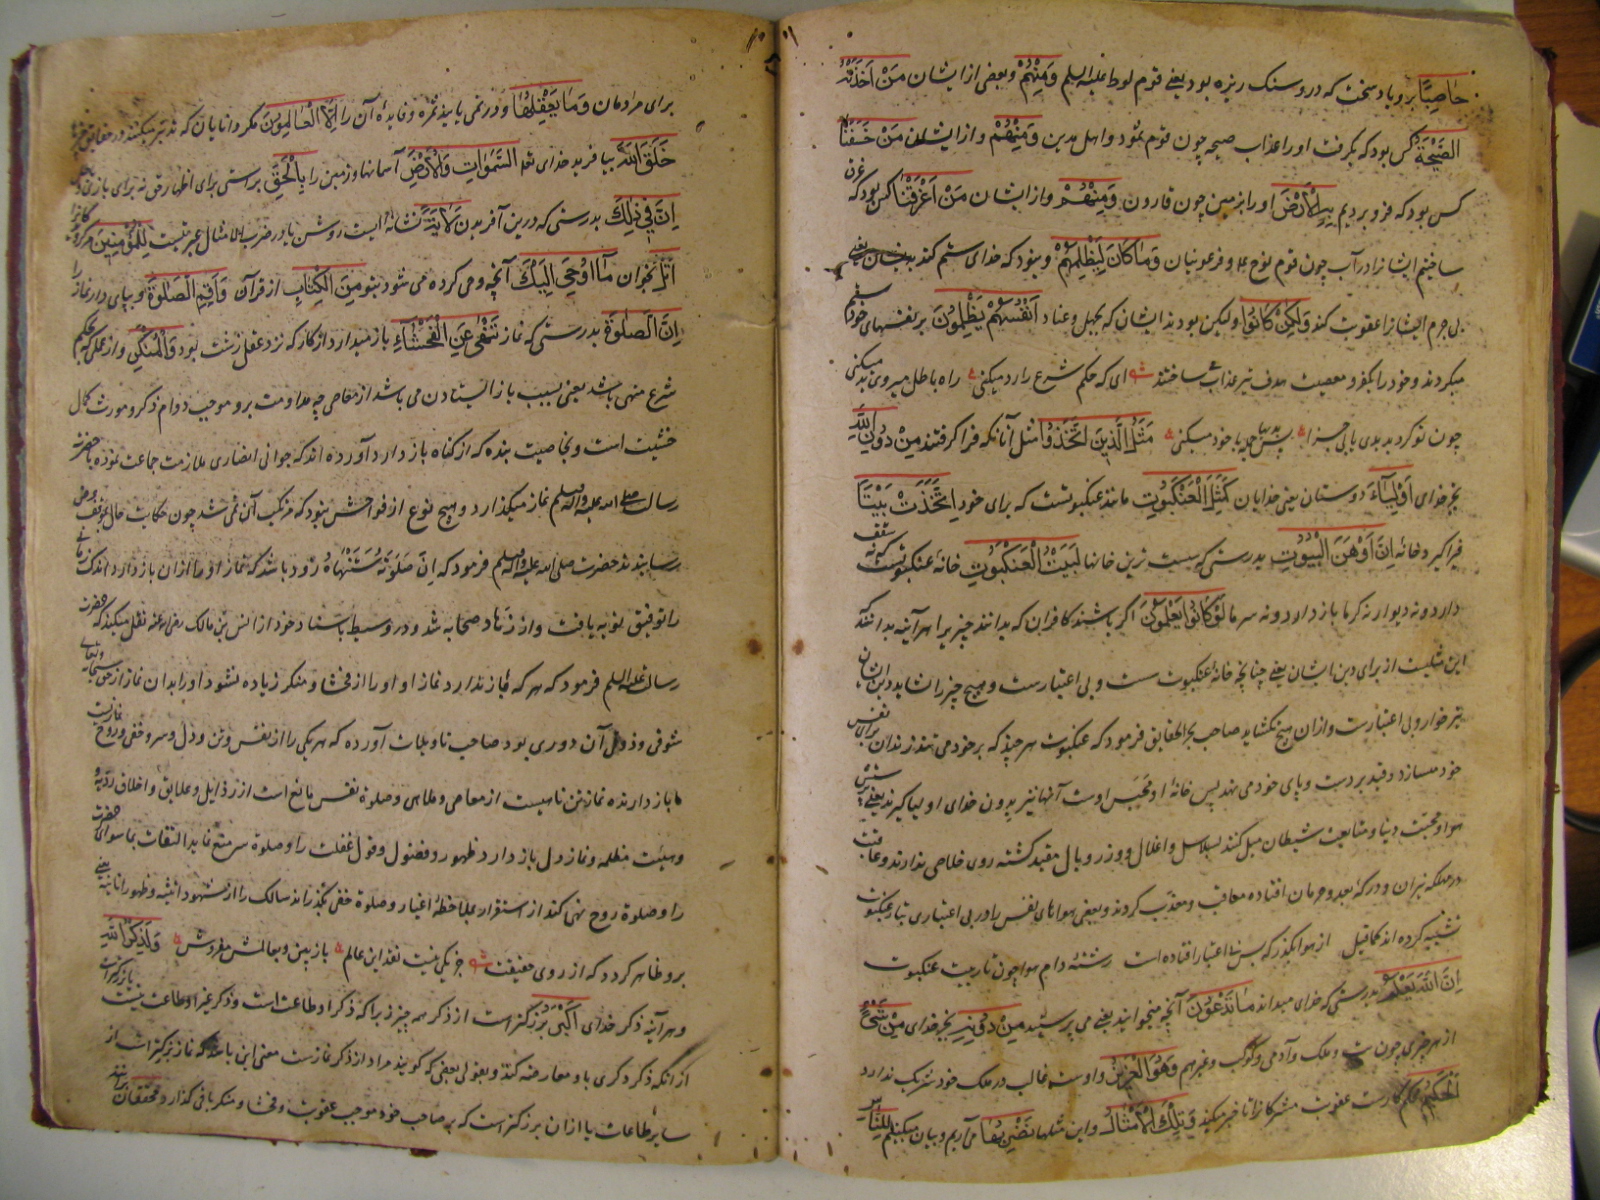 حَاصِبًا برو باد سخت که درو سنک ریزه بود یعنی قوم لوط علیه السلم وَمِنْهُمْ و بعضی از ایشان مَنْ اَخَذَتْهُ
الصَّیْحَةُ کس بود که بکرفت او را عذاب صیحه چون قوم ثمود و اهل مدین وَمِنْهُمْ و از ایشان مَنْ خَسَفْنَا
کس بود که فرو بردیم بِهِ الْاَرْضَ او را بزمین چون قارون وَمِنْهُمْ و از ایشان مَنْ اَغْرَقْنَا کس بود که غرق
ساختیم ایشانرا در آب چون قوم نوح و فرعونیان وَمَا كَانَ لِيَظْلِمَهُمْ و نبود که خدای ستم کند بدیشان یعنی
بی جرم ایشانرا عقوبت کند وَلٰكِنْ كَانُوا ولیکن بودند ایشان که بجهل و عناد اَنْفُسَهُمْ يَظْلِمُونَ بر نفسهای خود ستم
میکردند و خود را بکفر و معصیت هدف تیر عذاب ساختند ای که حکم شرع را رد میکنی راه باطل میروی بد میکنی
چون تو کردی بدی یابی جزا پس بدیها جمله با خود میکنی مَثَلُ الَّذِينَ اتَّخَذُوا مثل آنانکه فرا کرفتند مِنْ دُونِ اللّٰهِ
بجز خدای اَوْلِيَاءَ دوستان یعنی خدایان كَمَثَلِ الْعَنْكَبُوتِ مانند عنکبوتست که برای خود اتَّخَذَتْ بَيْتًا
فرا کیرد خانه اِنَّ اَوْهَنَ الْبُيُوتِ بدرستی که سست ترین خانها لَبَيْتُ الْعَنْكَبُوتِ خانهٔ عنکبوتست که نه سقف
دارد و نه دیوار نه کرما باز دارد و نه سرما لَوْ كَانُوا يَعْلَمُونَ اکر باشند کافران که بدانند چیزیرا هر آینه بدانند که
این مثلیست از برای دین ایشان یعنی چنانچه خانهٔ عنکبوت سست و بی اعتبارست و هیچ چیز را نشاید دین ایشان
نیز خوار و بی اعتبارست و ازان هیچ نکشاید صاحب بحر الحقایق فرمود که عنکبوت هر چند که بر خود می تند زندان برای نفس
خود میسازد و قید بر دست و پای خود می نهد پس خانهٔ او محبس اوست آنها نیز بدون خدای اولیا کیرند یعنی پرستش
هوا و محبت دنیا و متابعت شیطان میل کنند بسلاسل و اغلال و وزر و وبال مقید کشته روی خلاصی ندارند و عاقبت
در مهلکه نیران و درکهٔ بعد و حرمان افتاده معاقب و معذب کردند و بعضی هواهای نفس را در بی اعتباری بتار عنکبوت
تشبیه کرده اند کما قیل از هوا بکذر که بس بی اعتبار افتاده است رشتهٔ دام هوا چون تار بیت عنکبوت
اِنَّ اللّٰهَ يَعْلَمُ بدرستی که خدای میداند مَا تَدْعُونَ آنچه میخوانید یعنی می پرستید مِنْ دُونِهِ بجز خدای مِنْ شَيْءٍ
از هر چیزی چون و ملک و آدمی و کوکب و غیرهم وَهُوَ الْعَزِيزُ و اوست غالب در ملک خود شریک ندارد
الْحَكِيمُ کارست عقوبت مشرکانرا تاخیر میکند وَتِلْكَ الْاَمْثَالُ و این مثلها نَضْرِبُهَا می آریم و بیان میکنیم لِلنَّاسِ
برای مردمان وَمَا يَعْقِلُهَا و در نمی یابند ثمره و فایدهٔ آن را اِلَّا الْعَالِمُونَ مکر دانایان که تدبر میکنند در حقایق
خَلَقَ اللّٰهُ بیافرید خدای تع السَّمٰوَاتِ وَالْاَرْضَ آسمانها و زمین را بِالْحَقِّ براستی برای اظهار حق نه برای بازی
اِنَّ فِي ذٰلِكَ بدرستی که درین آفریدن لَاٰيَةً نشانه ایست روشن یا در ضرب الامثال عبرتیست لِلْمُؤْمِنِينَ مر کروندکانرا
اُتْلُ بخوان مَا اُوحِيَ اِلَيْكَ آنچه وحی کرده می شود بتو مِنَ الْكِتَابِ از قرآن وَاَقِمِ الصَّلٰوةَ و بپای دار نماز را
اِنَّ الصَّلٰوةَ بدرستی که نماز تَنْهٰى عَنِ الْفَحْشَاءِ باز میدارد از کار که نزد عقل زشت بود وَالْمُنْكَرِ و از عملی که بحکم
شرع منهی باشد یعنی بسبب باز ایستادن می باشد از معاصی چه مداومت برو موجب دوام ذکر و مورث کمال
خشیت است و بخاصیت بنده که از کناه باز دارد آورده اند که جوانی انصاری ملازمت جماعت نموده با حضرت
رسالت صلی الله علیه واله وسلم نماز میکذارد و هیچ نوع از فواحش نبود که مرتکب آن نمی شد چون حکایت حال بموقف عرض
رسانیدند حضرت صلی الله علیه واله وسلم فرمود که اِنَّ صَلٰوتَهُ سَتَنْهَاهُ زود باشد که نماز او را ازان باز دارد اندک زمانی
را توفیق توبه یافت و از زهاد صحابه شد و در وسیط باسناد خود از انس بن مالک رضی الله عنه نقل میکند که حضرت
رسالت علیه السلم فرمود که هر که باز ندارد نماز او او را از فحشا و منکر زیاده نشود او را بدان نماز از حق سبحانه و تعالی
آن دوری بود صاحب تاویلات آورده که هر یکی را از نفس و تن و دل و سر و خفی و روح نمازیست
باز دارنده نماز تن ناهیست از معاصی و ملاهی و صلوة نفس مانع است از رذایل و علایق و اخلاق ردیه
و هیئت مظلمه و نماز دل باز دارد ظهور و فضول و قول غفلت را و صلوة سر منع نماید التفات بما سوای حضرت
را و صلوة روح نهی کند از استقرار بملاحظهٔ اغیار و صلوة خفی بکذراند سالک را از شهود اثنینیه و ظهور انانیه یعنی
برو ظاهر کردد که از روی حقیقت جز یکی نیست نقد این عالم باز بین و بعالمش مفروش وَلَذِكْرُ اللّٰهِ
و هر آینه ذکر خدای اَكْبَرُ بزرکترست از ذکر همه چیز زیرا که ذکر او طاعت است و ذکر غیر او طاعت نیست
از آنکه ذکر دکری با و معارضه کند و بقولی بعضی که کویند مراد از ذکر نمازست معنی این باشد که نماز بزرکترست از
سایر طاعات یا ازان بزرکترست که بر صاحب خود موجب عقوبت و فحشا و منکر باقی کذارد محققان